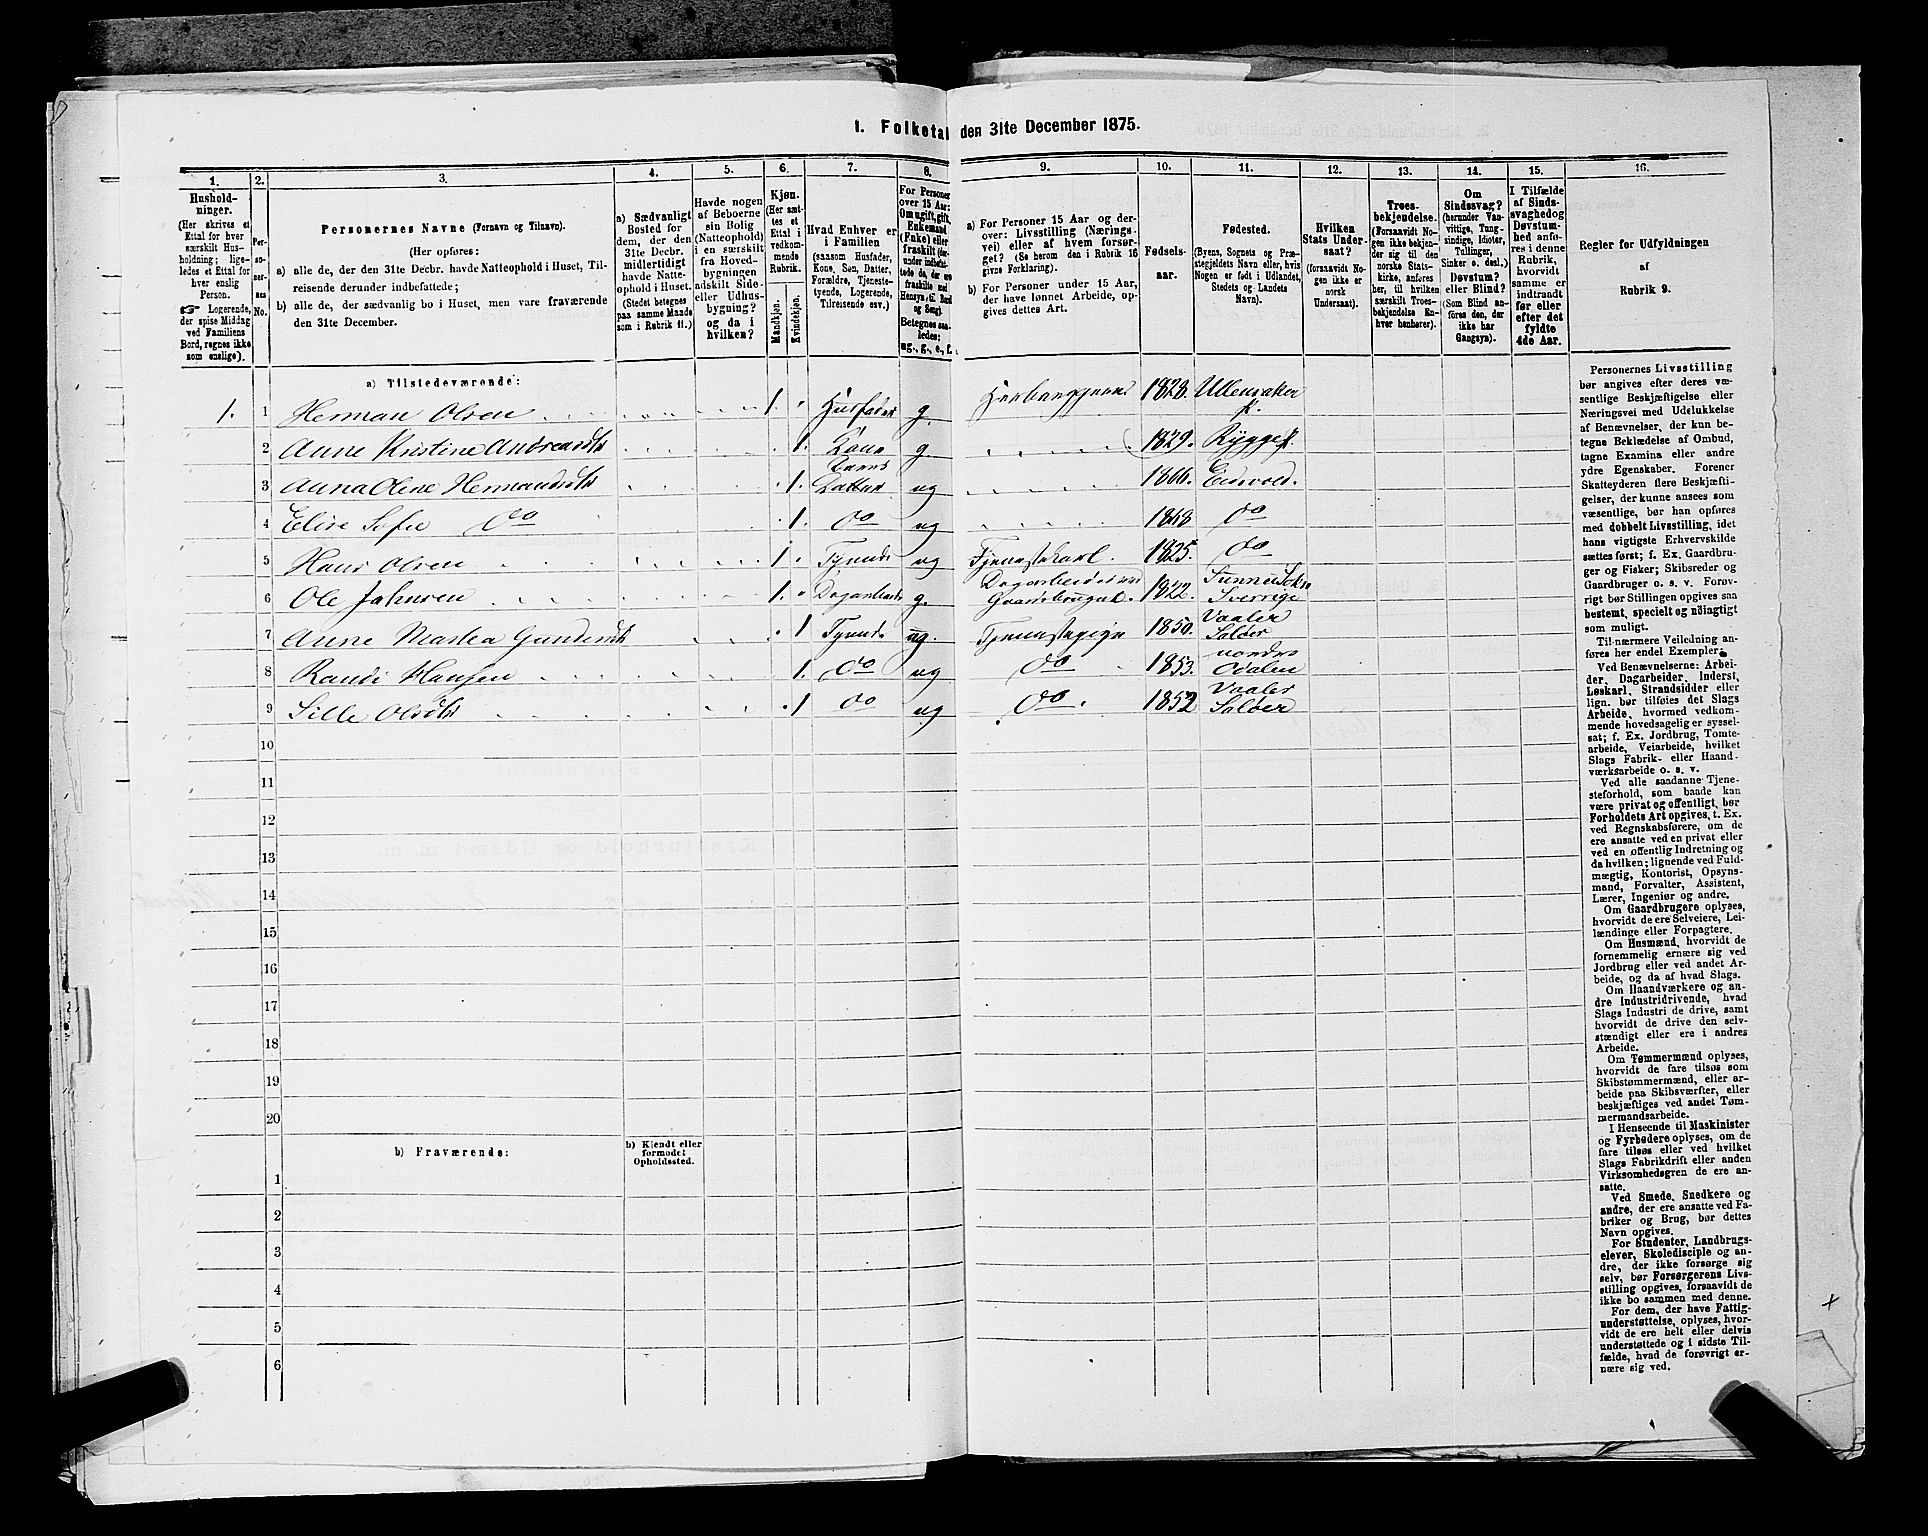 1. Folketal den 31te December 1875.
1. 2. 3. 4. 5. 6. 7. 8. 9. 10. 11. 12. 13. 14. 15. 16.
Hushold-
ninger.
(Her skrives et
Ettal for hver
særskilt Hus-
holdning; lige-
ledes et Ettal for
hver enslig
Person.
☞ Logerende,
der spise Middag
ved Familiens
Bord, regnes ikke
som enslige).
Per-
so-
ner-
nes
No.
Personernes Navne (Fornavn og Tilnavn).
(Her opføres:
a) alle de, der den 31te Decbr. havde Natteophold i Huset, Til-
reisende derunder indbefattede;
b) alle de, der sædvanlig bo i Huset, men vare fraværende
den 31te December.
a) Sædvanligt
Bosted for
dem, der den
31te Decbr.
midlertidigt
havde Natte-
ophold i Huset.
(Stedet betegnes
paa samme Maade
som i Rubrik 11.)
Havde nogen
af Beboerne
sin Bolig
(Natteophold)
i en særskilt
fra Hoved-
bygningen
adskilt Side-
eller Udhus-
bygning?
og da i
hvilken?
Kjøn.
(Her sæt-
tes et
Ettal i
vedkom-
mende
Rubrik.
Mandkjøn.
Kvindekjøn.
Hvad Enhver er
i Familien
(saasom Husfader,
Kone, Søn, Datter,
Forældre, Tjeneste-
tyende, Logerende,
Tilreisende osv.)
For Personer
over 15 Aar:
Om ugift, gift,
Enkemand
(Enke) eller
fraskilt (der-
under indbefat-
tede de, der ere
fraskilte med
Hensyn til Bord
og Seng).
Betegnes saa-
ledes:
ug., g., e., f.
a) For Personer 15 Aar og der-
over: Livsstilling (Nærings-
vei) eller af hvem forsør-
get? (Se herom den i Rubrik 16
givne Forklaring).
b) For Personer under 15 Aar,
der have lønnet Arbeide, op-
gives dettes Art.
Fødsels-
aar.
Fødested.
(Byens, Sognets og Præ-
stegjeldets Navn eller, hvis
Nogen er født i Udlandet,
Stedets og Landets
Navn).
Hvilken
Stats Under-
saat?
(forsaavidt No-
gen ikke er
norsk
Undersaat).
Troes-
bekjendelse.
(Forsaavidt No-
gen ikke bekjen-
der sig til den
norske Stats-
kirke, anføres
her, til hvilken
særskilt Troes-
bekjendelse En-
hver henhører).
Om
Sindssvag?
(herunder Van-
vittige, Tung-
sindige, Idioter,
Tullinger,
Sinker o. desl.)
Døvstum?
eller Blind?
(Som Blind an-
føres den, der
ikke har
Gangsyn).
I Tilfælde
af Sinds-
svaghed og
Døvstum-
hed anfø-
res i denne
Rubrik,
hvorvidt
samme er
indtraadt
før eller
efter det
fyldte
4de Aar.
Regler for Udfyldningen
af
Rubrik 9.
a) Tilstedeværende:
1. 1 Herman Olsen 1. Husfader g. 1828. Ullensaker
2 Anne Kristine Andreasdtr 1. Kone g. 1829. Rygge
3 Anna Oline Hermandsdtr 1. Datter ug 1866. Eidsvold.
4 Elise Sofie Do 1. Do ug 1868 Do
5 Hans Olsen 1. Tyende ug Tjenestekarl. 1825. Do
6 Ole Johnsen 1. g. Gaardsbruget. 1822. Sverrige
7 Anne Martea Gundersdtr 1 Tyende ug. Tjenestepige 1850. Vaaler Solør
8 Randi Hansen 1. Do ug Do 1853. nordre Odalen
9 Sille Olsdtr 1 Do ug Do. 1852 Vaaler Solør
10
11
12
13
14
15
16
17
18
19
20
b) Fraværende:
b) Kjendt eller
formodet
Opholdssted.
1
2
3
4
5
6
Personernes Livsstilling
bør angives efter deres væ-
sentlige Beskjæftigelse eller
Næringsvei med Udelukkelse
af Benævnelser, der kun be-
tegne Beklædelse af Ombud,
tagne Examina eller andre
ydre Egenskaber. Forener
Skatteyderen flere Beskjæfti-
gelser, der kunne ansees som
væsentlige, bør han opføres
med dobbelt Livsstilling, idet
hans vigtigste Erhvervskilde
sættes først; f. Ex. Gaardbru-
ger og Fisker; Skibsreder og
Gaardbruger o. s. v. Forøv-
rigt bør Stillingen opgives saa
bestemt, specielt og nøiagtigt
som muligt.
Til nærmere Veiledning an-
føres her endel Exempler:
Ved Benævnelserne: Arbei-
der, Dagarbeider, Inderst,
Løskarl, Strandsidder eller
lign. bør tilføies det Slags
Arbeide, hvormed vedkom-
mende hovedsagelig er syssel-
sat; f. Ex. Jordbrug, Tomte-
arbeide, Veiarbeide, hvilket
Slags Fabrik- eller Haand-
værksarbeide o. s. v.
Ved alle saadanne Tjene-
steforhold, som baade kan
være privat og offentligt, bør
Forholdets Art opgives, t. Ex.
ved Regnskabsførere, om de
ere ansatte ved en privat eller
ved en offentlig Indretning og
da hvilken; lignende ved Fuld-
mægtig, Kontorist, Opsyns-
mand, Forvalter, Assistent,
Lærer, Ingeniør og andre.
Om Gaardbrugere oplyses,
hvorvidt de ere Selveiere, Lei-
lændinge eller Forpagtere.
Om Husmænd, hvorvidt de
fornemmelig ernære sig ved
Jordbrug eller ved andet Ar-
beide, og da af hvad Slags.
Om Haandværkere og an-
dre Industridrivende, hvad
Slags Industri de drive, samt
hvorvidt de drive den selv-
stændigt eller ere i andres
Arbeide.
Om Tømmermænd oplyses,
hvorvidt de fare tilsøs som
Skibstømmermænd, eller ar-
beide paa Skibsværfter, eller
beskjæftiges ved andet Tøm-
mermandsarbeide.
I Henseende til Maskinister
og Fyrbødere oplyses, om de
fare tilsøs eller ved hvilket
Slags Fabrikdrift eller anden
Virksomhedsgren de ere an-
satte.
Ved Smede, Snedkere og
andre, der ere ansatte ved Fa-
briker og Brug, bør dettes
Navn opgives.
For Studenter, Landbrugs-
elever, Skoledisciple og an-
dre, der ikke forsørge sig
selv, bør Forsørgerens Livs-
stilling opgives, forsaavidt de
ikke bo sammen med denne.
For dem, der have Fattig-
understøttelse, oplyses, hvor-
vidt de ere helt eller delvis
understøttede og i sidste Til-
fælde, hvad de forøvrigt er-
nære sig ved.